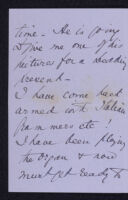 time – He is going
to give me one of his
pictures for a wedding
present –
I have come back
armed with Italian
Grammers etc!
I have been playing
the organ & now
must get ready to